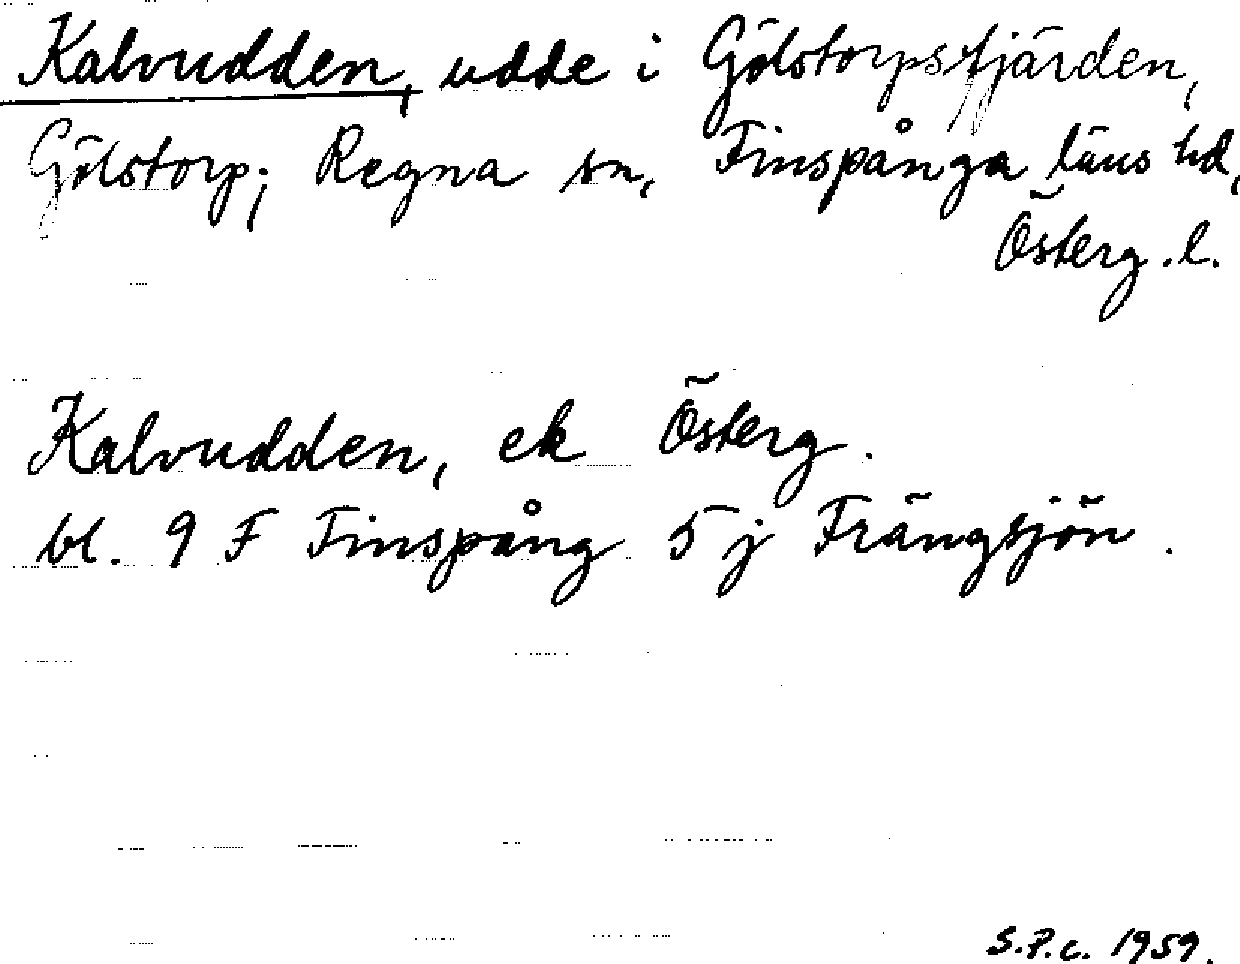 Kalvudden, udde i Gölstorpsfjärden,
Gölstorp; Regna sn, Finspånga läns hd,
Österg.l.
Kalvudden, ek Österg.
bl. 9 F Finspång 5 j Frängsjön.
S.P.c. 1959.